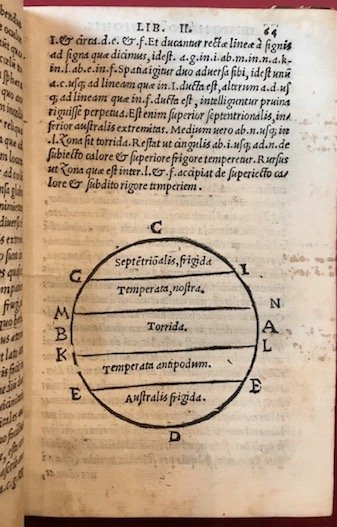 LIB. II. 64
I. & circa.d.e. & f. Et ducantur rectæ lineæ à signis
ad signa quæ dicimus, idest. a.g.in i ab.m.in.n.a.k
in.l.ab.e.in.f. Spatia igitur duo adversa sibi, idest unũ
a.c.usq; ad lineam quæ in.I.ducta est, alterum a.d.us
q; ad lineam quæ in.f.ducta est, intelliguntur pruina
riguisse perpetua. Est enim superior septentrionalis, in
ferior australis extremitas. Medium vero ab.n.usq; in
l. Zona sit torrida. Restat ut cingulus ab.i.usq; ad.n.de
subiecto calore & superiore frigore temperetur. Rursus
ut Zona quæ est inter.l. & f. accipiat de superiecto ca
lore & subdito rigore temperiem.
C
Septētriõalis, frigida
G I
Temperata, nostra.
M N
B Torrida. A
K L
Temperata antipodum.
E E
Australis frigida.
D